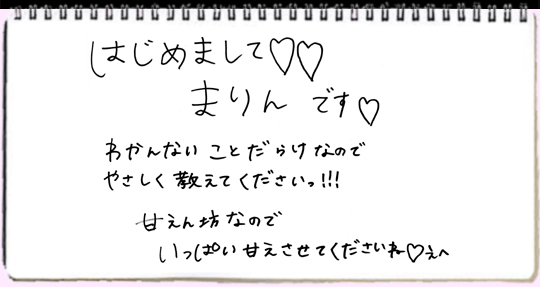 はじめまして♡♡
まりん です♡
わかんない ことだらけなので
やさしく 教えてくださいっ!!!
甘えん坊なので
いっぱい甘えさせてくださいね♡えへ